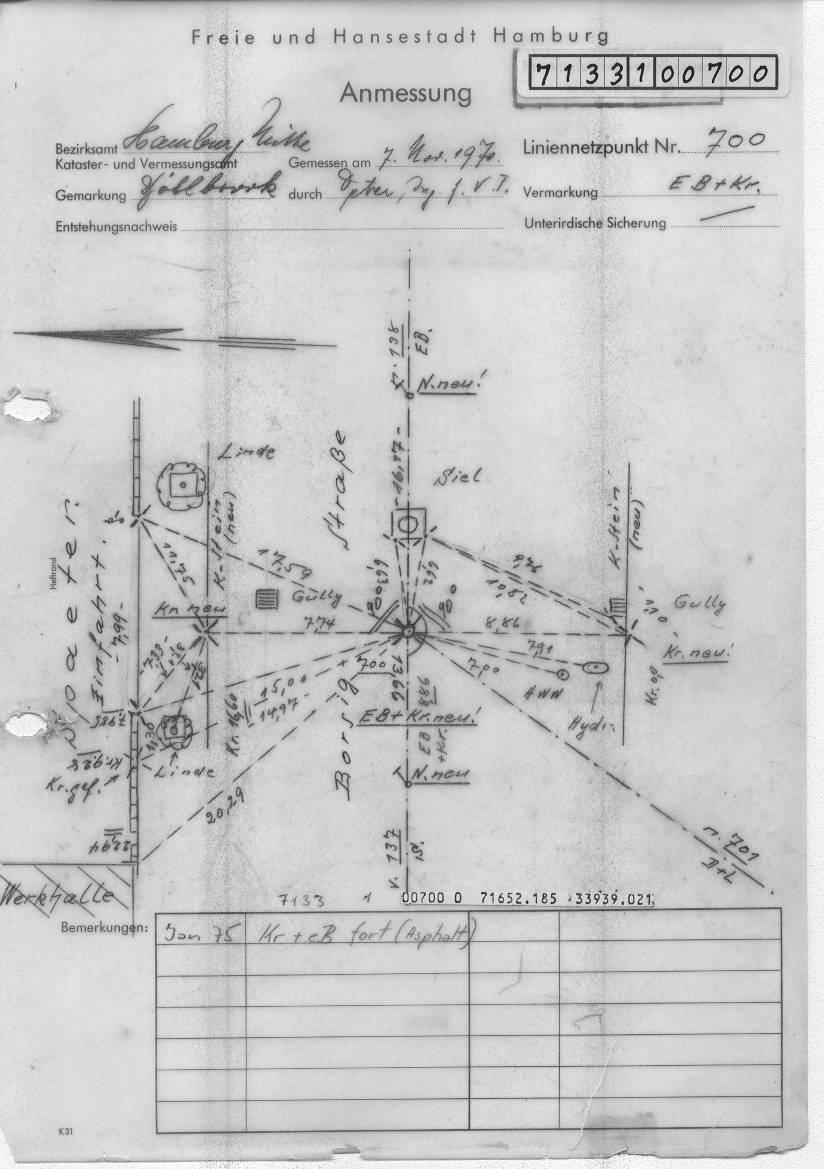 Freie und Hansestadt Hamburg
7133100700
Anmessung
Bezirksamt Hamburg Mitte
Kataster- und Vermessungsamt
Gemessen am 7. Nov. 1970.
Liniennetzpunkt Nr. 700
Gemarkung
durch
Vermarkung EB+Kr.
Entstehungsnachweis
Unterirdische Sicherung
n. 138
EB.
N.neu!
Linde
Straße
16,17
Siel
K-Stein
(neu)
K-Stein
(neu)
Spaeter.
Einfahrt.
Heftrand
11,75
17,59
Gully
10,52
Gully
Kr.neu
7,74
8,86
7,99
7,91
7,00
Kr.neu!
700
13,66
15,00
14,97
Kr. 16,60
EB+Kr.neu!
886
EB
+Kr.
Hydr.
Borsig
Linde
Kr.gef.
N.neu
20,29
22,94
v. 137
n. 701
D+L
Werkhalle
7133 1 00700 0 71652.185 33939.021
Bemerkungen:
Jan 75 Kr + eB fort (Asphalt)
K31